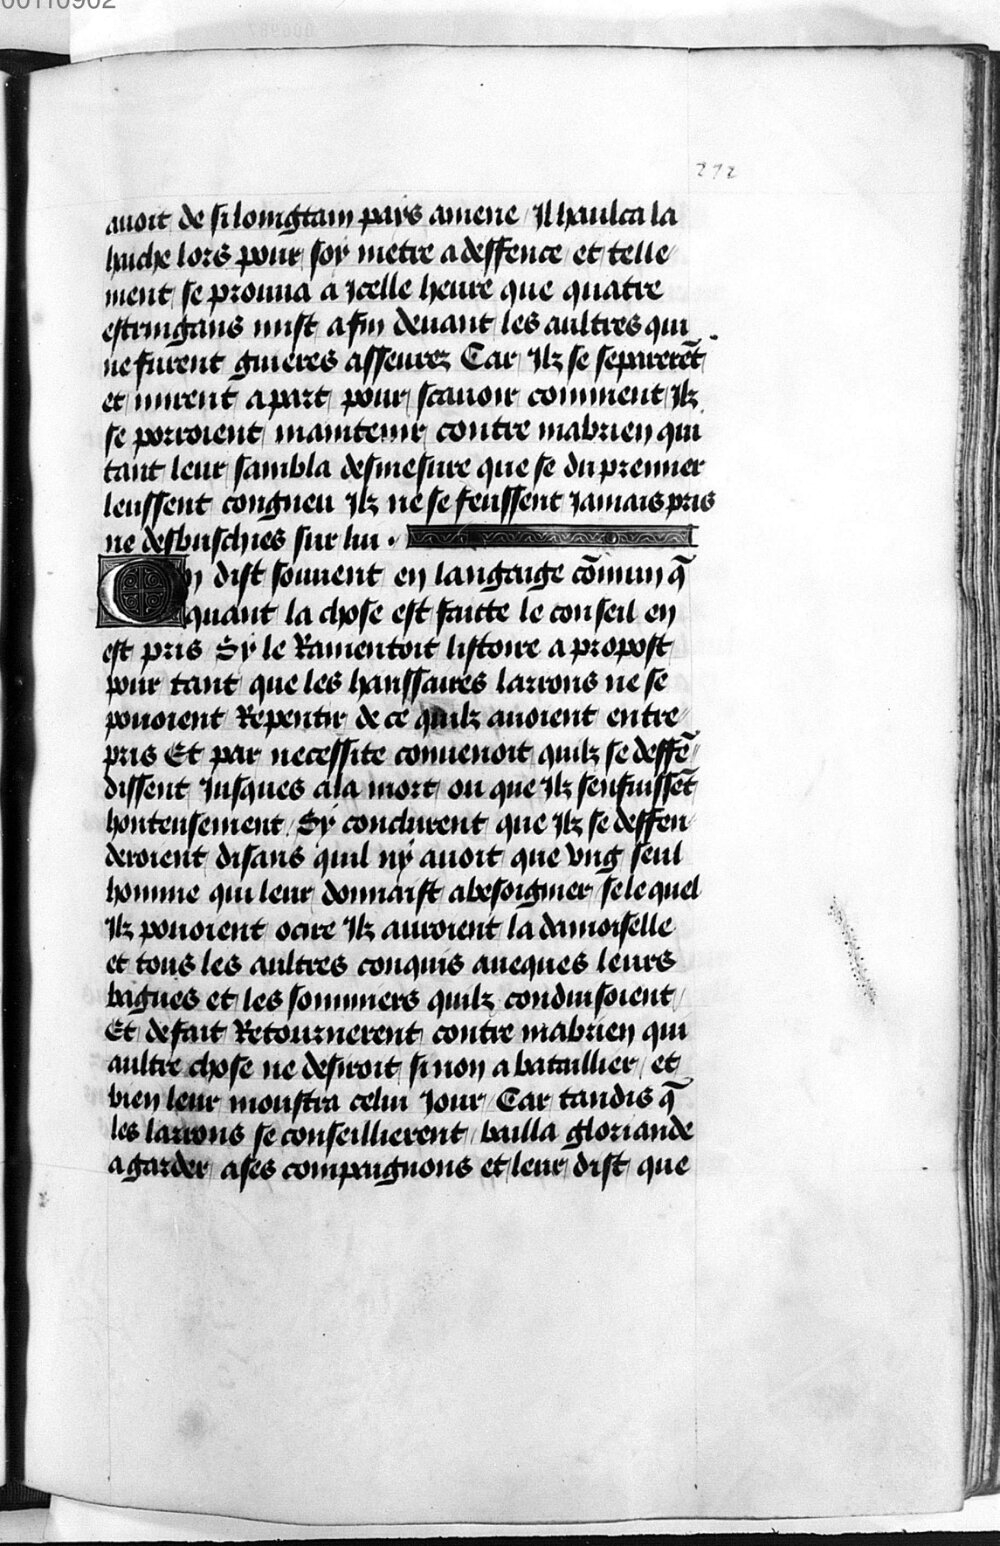 00110902
272
auoit de si loingtain pays amene / Il haulca la
hache lors pour soy metre a deffence et telle
ment se prouua a icelle heure que quatre
estringans mist a fin deuant les aultres qui
ne furent guieres asseurez Car Ilz se separerēt
et mirent a part pour scauoir comment Ilz
se porroient maintenir contre mabrien qui
tant leur sambla desmesure que se du premier
leussent congneu Ilz ne se feussent Jamais pris
ne desbuschies sur lui .
On dist souuent en langaige cōmun q̄
quant la chose est faicte le conseil en
est pris Sy le Ramentoit listoire a propost
pour tant que les haussaires larrons ne se
pouoient Repentir de ce quilz auoient entre
pris Et par necessite conuenoit quilz se deffē
dissent Jusques a la mort ou que Ilz senfuissēt
honteusement / Sy conclurent que Ilz se deffen
deroient disans quil ny auoit que vng seul
homme qui leur donnaist a besoigner se lequel
Ilz pouoient ocire Ilz auroient la damoiselle
et tous les aultres conquis aueques leurs
bagues et les sommiers quilz conduisoient /
Et de fait Retournerent contre mabrien qui
aultre chose ne desiroit si non a bataillier / et
bien leur monstra celui Jour / Car tandis q̄
les larrons se conseillierent / bailla gloriande
a garder a ses compaignons et leur dist que